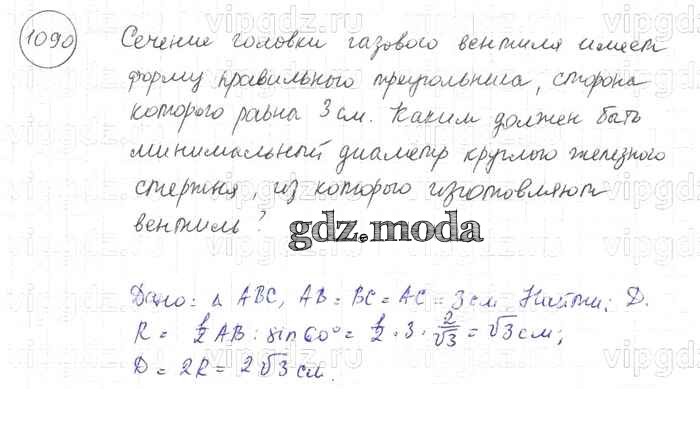 1090 Сечение головки газового вентиля имеет
форму правильного треугольника, сторона
которого равна 3 см. Каким должен быть
минимальный диаметр круглого железного
стержня, из которого изготовляют
вентиль?
gdz.moda
Дано: Δ ABC, AB = BC = AC = 3 см. Найти: D.
R = 1/2 AB : sin 60° = 1/2 · 3 · 2/√3 = √3 см;
D = 2R = 2√3 см.